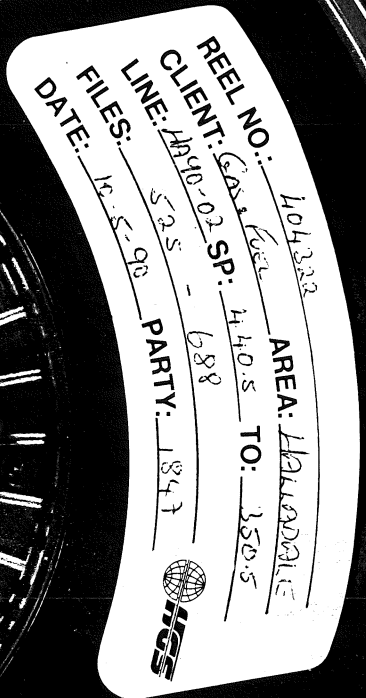 REEL NO.: 404322
CLIENT: Gas & Fuel AREA: HALLADALE
LINE: HA90-02 SP: 440.5 TO: 350.5
FILES: 525 - 688
DATE: -5-90 PARTY: 1847
HGS